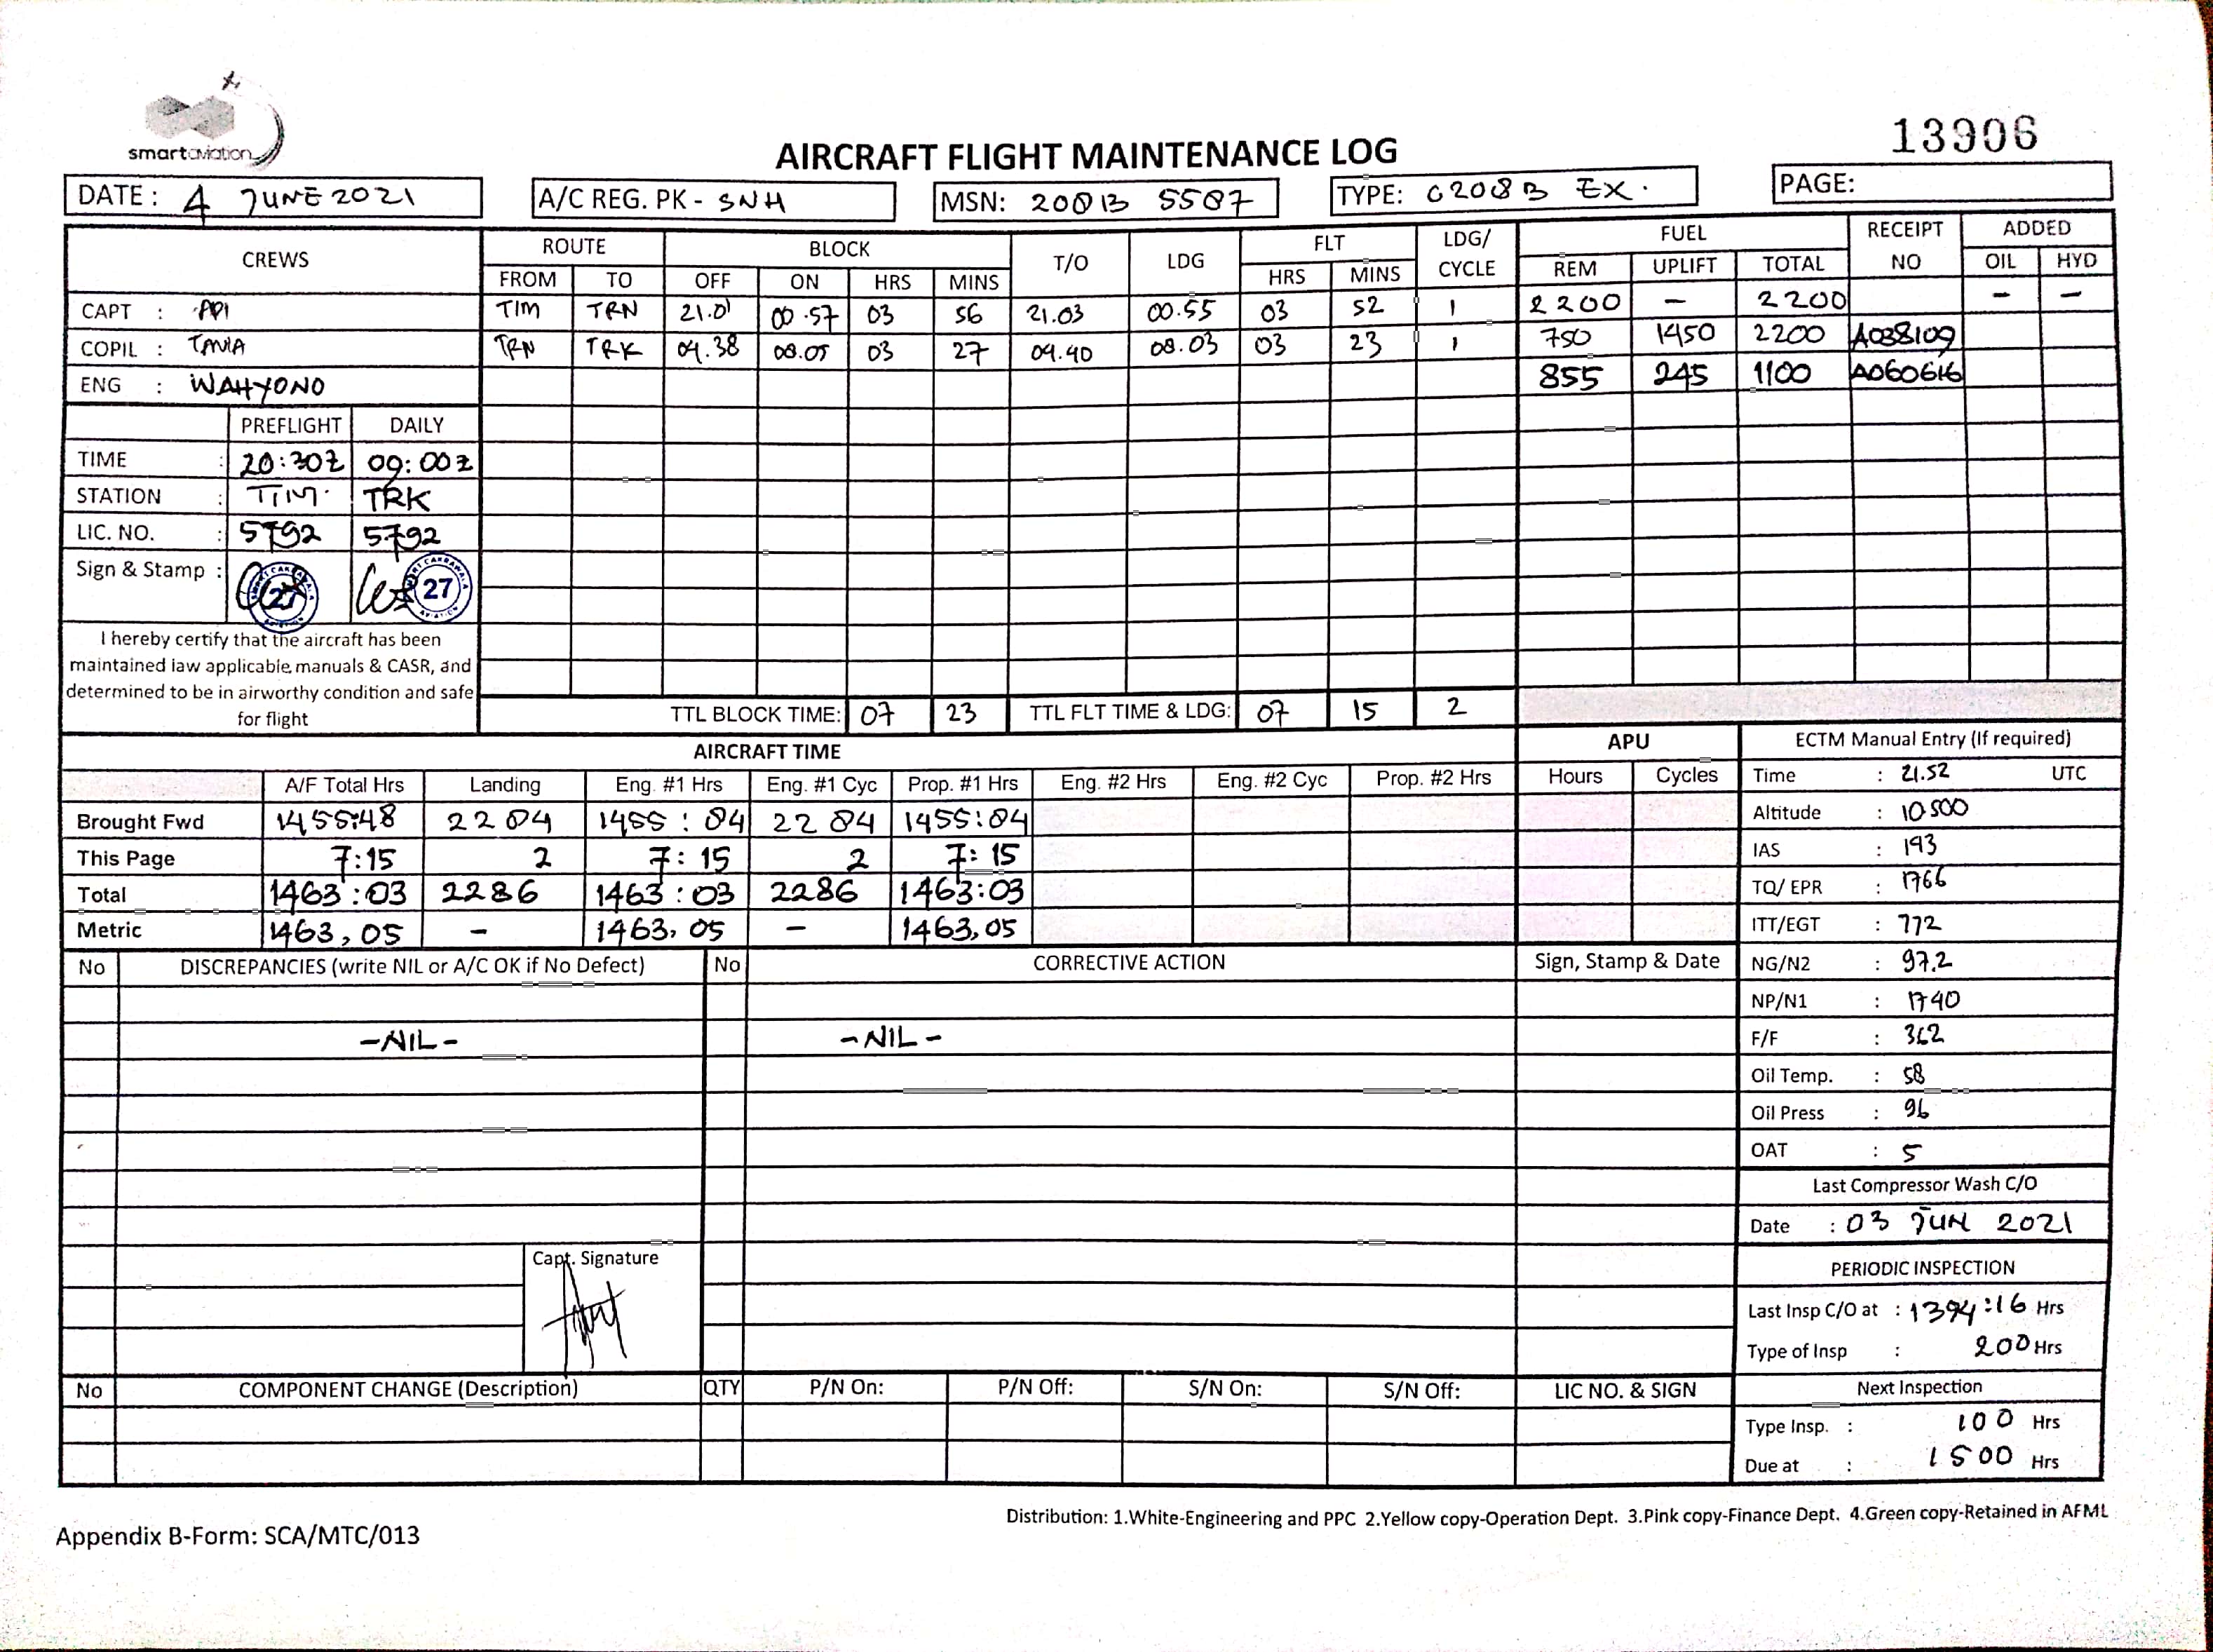 smartaviation
13906
AIRCRAFT FLIGHT MAINTENANCE LOG
DATE: 4 JUNE 2021 A/C REG. PK - SNH MSN: 208B 5507 TYPE: C208B EX. PAGE:
CREWS ROUTE BLOCK T/O LDG FLT LDG/ CYCLE FUEL RECEIPT NO ADDED
FROM TO OFF ON HRS MINS HRS MINS REM UPLIFT TOTAL OIL HYD
CAPT : TIM TRN 21.01 00.57 03 56 21.03 00.55 03 52 1 2200 - 2200 - -
COPIL : TANIA TRN TRK 04.38 08.05 03 27 04.40 08.03 03 23 1 750 1450 2200 A038109
ENG : WAHYONO 855 245 1100 A060616
PREFLIGHT DAILY
TIME : 20:30Z 09:00Z
STATION : TIM. TRK
LIC. NO. : 5792 5792
Sign & Stamp : 27 27
I hereby certify that the aircraft has been
maintained iaw applicable manuals & CASR, and
determined to be in airworthy condition and safe
for flight
TTL BLOCK TIME: 07 23 TTL FLT TIME & LDG: 07 15 2
AIRCRAFT TIME APU ECTM Manual Entry (If required)
A/F Total Hrs Landing Eng. #1 Hrs Eng. #1 Cyc Prop. #1 Hrs Eng. #2 Hrs Eng. #2 Cyc Prop. #2 Hrs Hours Cycles Time : 21.52 UTC
Brought Fwd 1455:48 2284 1455:84 2284 1455:84 Altitude : 10.500
This Page 7:15 2 7:15 2 7:15 IAS : 193
Total 1463:03 2286 1463:03 2286 1463:03 TQ/ EPR : 1766
Metric 1463,05 - 1463,05 - 1463,05 ITT/EGT : 772
No DISCREPANCIES (write NIL or A/C OK if No Defect) No CORRECTIVE ACTION Sign, Stamp & Date NG/N2 : 97.2
NP/N1 : 1740
-NIL- -NIL- F/F : 362
Oil Temp. : 58
Oil Press : 96
OAT : 5
Last Compressor Wash C/O
Date : 03 JUN 2021
Capt. Signature
PERIODIC INSPECTION
Last Insp C/O at : 1394:16 Hrs
Type of Insp : 200 Hrs
No COMPONENT CHANGE (Description) QTY P/N On: P/N Off: S/N On: S/N Off: LIC NO. & SIGN Next Inspection
Type Insp. : 100 Hrs
Due at : 1500 Hrs
Distribution: 1.White-Engineering and PPC 2.Yellow copy-Operation Dept. 3.Pink copy-Finance Dept. 4.Green copy-Retained in AFML
Appendix B-Form: SCA/MTC/013